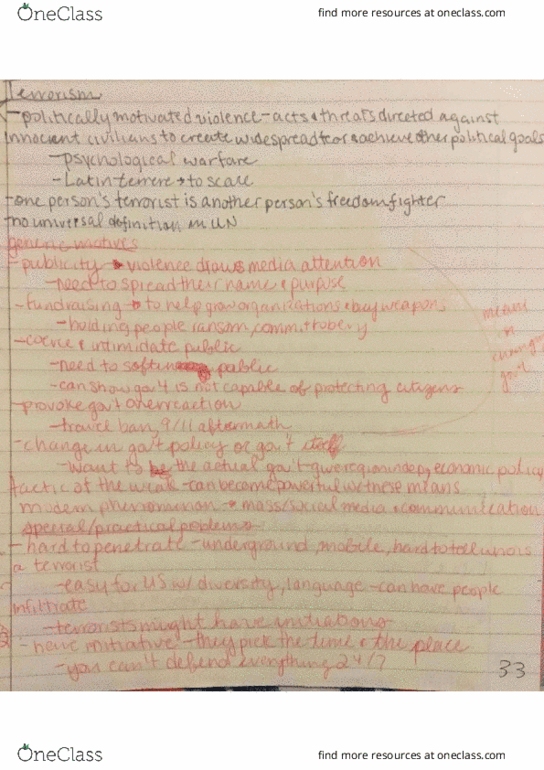 OneClass
find more resources at oneclass.com
Terrorism
-politically motivated violence - acts & threats directed against
innocient civilians to create widespread fear & achieve other political goals
-psychological warfare
-Latin terrere → to scare
-one person's terrorist is another person's freedom fighter
-no universal definition in UN
generic motives
-publicity → violence draws media attention
-need to spread their name & purpose
-fundraising → to help grow organizations & buy weapons
-holding people ransom, commit robery
-coerce & intimidate public
-need to soften public
-can show gov't is not capable of protecting citizens
-provoke gov't overreaction
-travel ban, 9/11 aftermath
-change in gov't policy or gov't itself
-want to be the actual gov't - give region indep, economic policy
tactic of the weak - can become powerful w/ these means
modern phenomenon → mass/social media & communication
special/practical problems
-hard to penetrate - underground, mobile, hard to tell who is
a terrorist
-easy for US w/ diversity, language - can have people
infiltrate
-terrorists might have initiations
-have initiative - they pick the time & the place
-you can't defend everything 24/7
33
OneClass
find more resources at oneclass.com